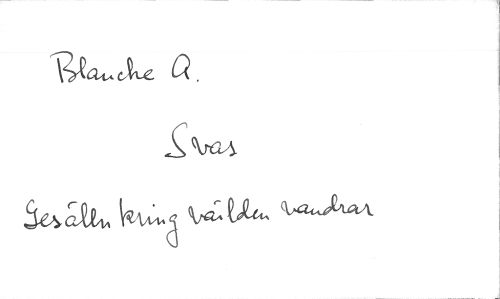 Blanche A.
Svas
Gesälln kring världen vandrar